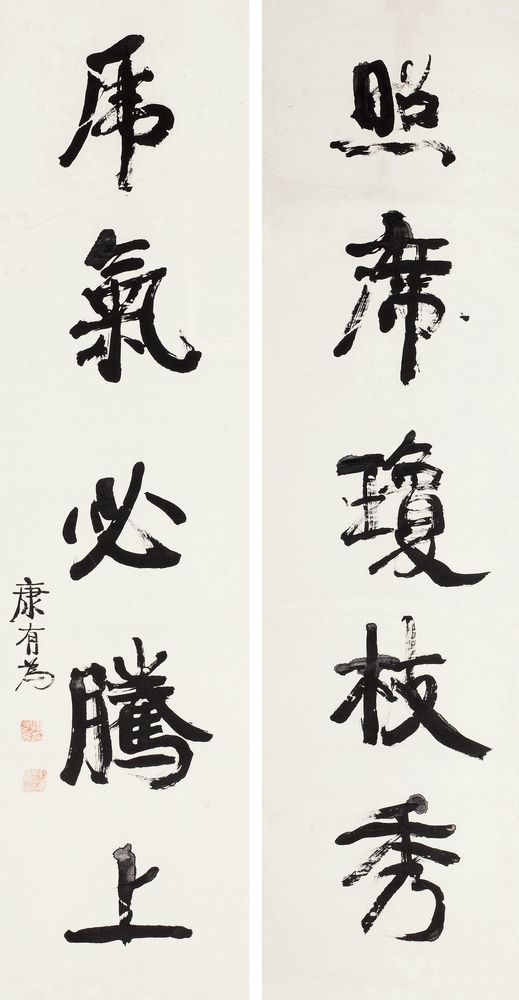 照席瓊枝秀
虎氣必騰上
康有為